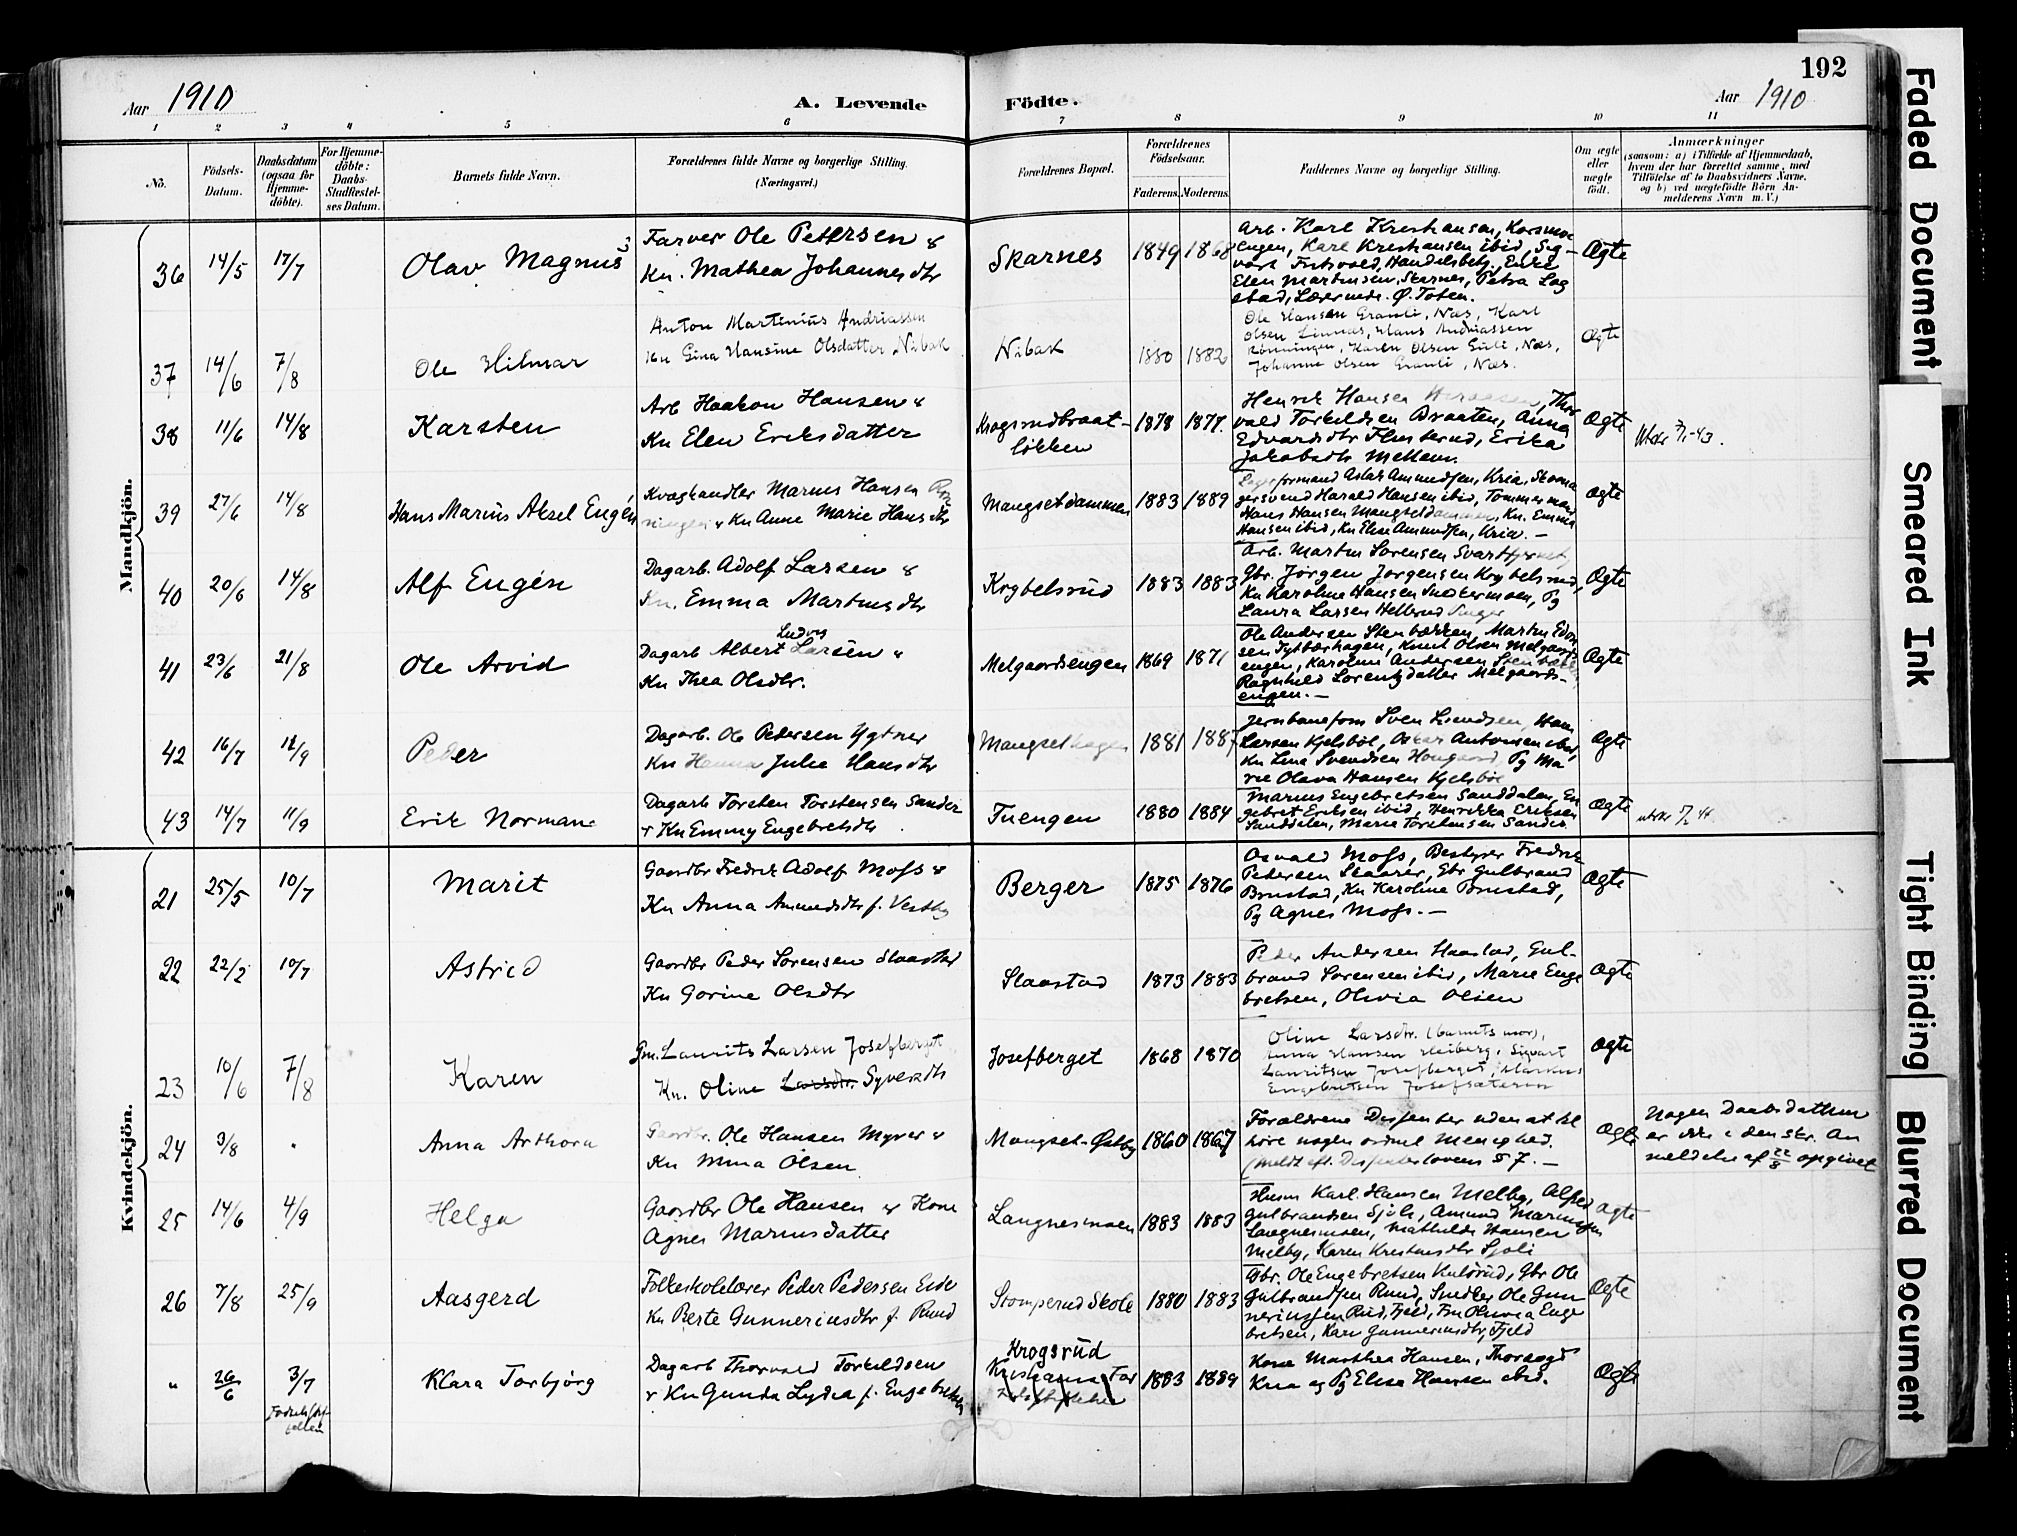 192
Aar 1910
A. Levende Fødte.
Aar 1910
1 2 3 4 5 6 7 8 9 10 11
No.
Fødsels-
Datum.
Daabsdatum
(ogsaa for
Hjemme-
døbte).
For Hjemme-
døbte:
Daabs-
Stadfæstel-
ses Datum.
Barnets fulde Navn.
Forældrenes fulde Navne og borgerlige Stilling.
(Næringsvei.)
Forældrenes Bopæl.
Forældrenes
Fødselsaar.
Faderens. Moderens.
Faddernes Navne og borgerlige Stilling.
Om ægte
eller
uægte
født.
Anmærkninger
(saasom: a) i Tilfælde af Hjemmedaab,
hvem der har forrettet samme, med
Tilføielse af to Daabsvidners Navne,
og b) ved uægtefødte Børn An-
melderens Navn m. V.)
Mandkjøn.
36 14/5 17/7 Olav Magnus
Farver Ole Petersen &
Kn. Mathea Johannesdtr
Skarnes 1849 1868
Arb. Karl Kristiansen, Korsmo
engen, Karl Kristiansen ibid, Sig-
vart Fritsvold, Handelsbetj., Enke
Elen Martinsen, Skarnes, Petra Log
stad, Lærerinde. Ø. Toten.
Ægte
37 14/6 7/8 Ole Hilmar
Anton Martinius Andriassen
Kn Gina Hansine Olsdatter Nibak
Nibak 1880 1882
Ole Hansen Granli, Næs, Karl
Olsen Linnes, Hans Andriassen
Rønningen, Karen Olsen Guli, Næs,
Johanne Olsen Granli, Næs.
Ægte
38 11/6 14/8 Karsten
Arb Haakon Hansen &
Kn Elen Eriksdatter
Krogsrudbraat-
løkken
1878 1877.
Henrik Hansen, Thor
vald Torkildsen Braaten, Anna
Edvardsdtr Flusterud, Erika
Jakobsdtr Mellem.
Ægte
39 27/6 14/8 Hans Marius Aksel Eugén
Kvæghandler Marius Hansen Røn
ningen & Kn Anne Marie Hansdtr
Mangsetdammen 1883 1889
Lagerformand Aslak Amundsen, Kria, Skoma
gersvend Harald Hansen ibid, Tømmermand
Hans Hansen Mangsetdammen, Kn. Emma
Hansen ibid, Kn Elise Amundsen, Kria. —
ægte
40 20/6 14/8 Alf Eugén
Dagarb. Adolf Larsen &
Kn. Emma Martinsdtr
Krybelsrud 1883 1883
Arb. Martin Sørensen Svarttjernet
Gbr. Jørgen Jørgensen Krybelsrud,
Kn Karoline Hansen Snekkermoen, Pg
Laura Larsen Hellerud
Ægte
41 23/6 21/8 Ole Arvid
Ludvig
Dagarb Albert Larsen &
Kn Thea Olsdtr.
Melgaardsengen 1869 1871
Ole Andersen Stenbækken, Martin Edv
sen Tyttbærhagen, Knut Olsen Melgaards
engen, Karoline Andersen Stenbækk
Ragnhild Lorentzdatter Melgaards-
engen. —
Ægte
42 16/7 11/9 Peder
Dagarb. Ole Petersen Ygtner
Kn Hanna Julie Hansdtr
Mangsethagen 1881 1887
Jernbanefom Sven Svendsen, Hans
Larsen Kjelsbøl, Oskar Antonsen ibid,
Kn Lina Svendsen Haugaard, Pg Ma
rie Olava Hansen Kjelsbøl
Ægte
43 14/7 11/9 Erik Norman
Dagarb Torsten Torstensen Sander
& Kn Emmy Engebretsdtr
Tuengen 1880 1884
Marius Engebretsen Sanddalen, En
gebret Eriksen ibid, Henrikka Eriksen
Sanddalen, Marie Torstensen Sander
Ægte
Kvindekjøn.
21 25/5 10/7 Marit
Gaardbr Fredrik Adolf Moss &
Kn Anna Amundsdtr f. Vestby
Berger 1875 1876
Osvald Moss, Bestyrer Fredrik
Petersen Skaarer, Gbr Gulbrand
Brustad, Kn Karoline Brustad,
Pg Agnes Moss. —
Ægte
22 22/2 10/7 Astrid
Gaardbr Peder Sørensen Slaastad
Kn Gorine Olsdtr
Slaastad 1873 1883
Peder Andersen Haastad, Gul-
brand Sørensen ibid, Marie Enge
bretsen, Olivia Olsen
Ægte
23 10/6 7/8 Karen
Gm. Laurits Larsen Josefberget
Kn. Oline Larsdtr. Syversdtr
Josefberget 1868 1870
Oline Larsdtr. (barnets mor),
Anna Hansen Heiberg, Sigvart
Lauritsen Josefberget, Markus
Engebretsen Josefsæteren
Ægte
24 3/8 " Anna Arthora
Gaardbr. Ole Hansen Myrer &
Kn Mina Olsen
Mangset-Østby 1860 1867
Forældrene Dissenter uden at til
høre nogen ordnet Menighed.
(Meldt eft. Dissenterlovens § 7. —
Ægte
Nogen Daabsdatum
er ikke i den skr. An
meldelse af 22/8 opgivet
25 14/6 4/9 Helga
Gaardbr Ole Hansen & Kone
Agnes Marinsdatter
Langnesmoen 1883 1883
Husm Karl Hansen Melby, Alfred
Gulbrandsen Sjøli, Amund Marinussen
Langnesmoen, Mathilde Hansen
Melby, Karen Kristensdtr Sjøli
Ægte
26 7/8 25/9 Aasgerd
Folkeskolelærer Peder Pedersen Eid &
Kn Berte Gunneriusdtr f. Ruud
Stomperud Skole 1880 1883
Gbr. Ole Engebretsen Kulsrud, Gbr Ole
Gulbrandsen Ruud, Snedker Ole Gun
neriussen Ruud, Fjeld, Fru Oluvia Enge
bretsen, Kari Gunneriusdtr, Fjeld
Ægte
" 26/6 3/7 Klara Torbjørg
Fødselsstif
telsen
Dagarb Thorvald Torkildsen
& Kn Gunda Lydia f. Engebretsen
Krogsrud
Kristiania
1883 1889
Kone Marthea Hansen, Thorsgd
Kria og Pg Elisa Hansen ibid.
Ægte
Faded Document
Smeared Ink
Tight Binding
Blurred Document